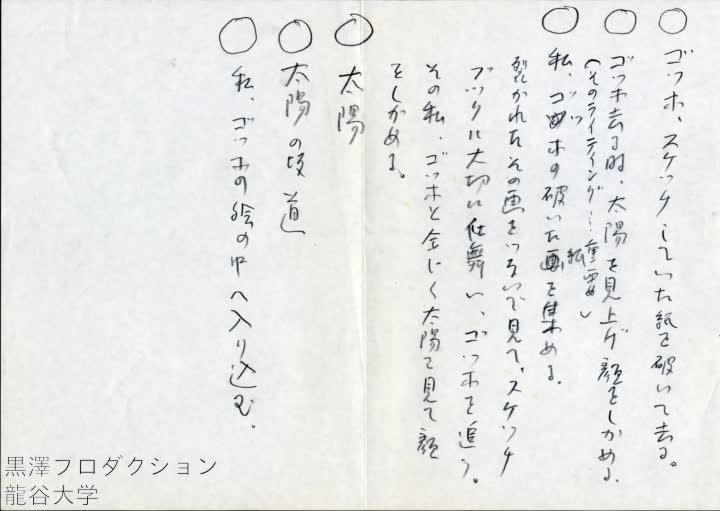 ○ゴッホ、スケッチしていた紙を破いて去る。
○ゴッホ去る時、太陽を見上げ顔をしかめる。
(そのライティング…重要)
○私、ゴッホの破いた画紙を集める。
裂かれたその画をつないで見て、スケッチ
ブックに大切に仕舞い、ゴッホを追う。
その私、ゴッホと全じく太陽を見て顔
をしかめる。
○太陽
○太陽の坂道
○私、ゴッホの絵の中へ入り込む。
黒澤プロダクション
龍谷大学